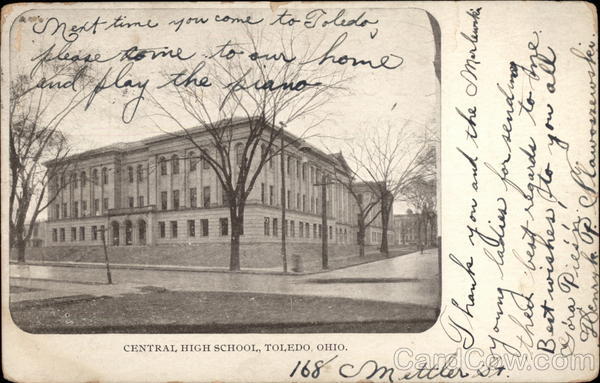 Next time you come to Toledo,
please come to our home
and play the piano
Thank you and the
young ladies for sending
their best regards to me.
Best wishes to you all
CENTRAL HIGH SCHOOL, TOLEDO, OHIO.
168 Mettler St.
CardCow.com